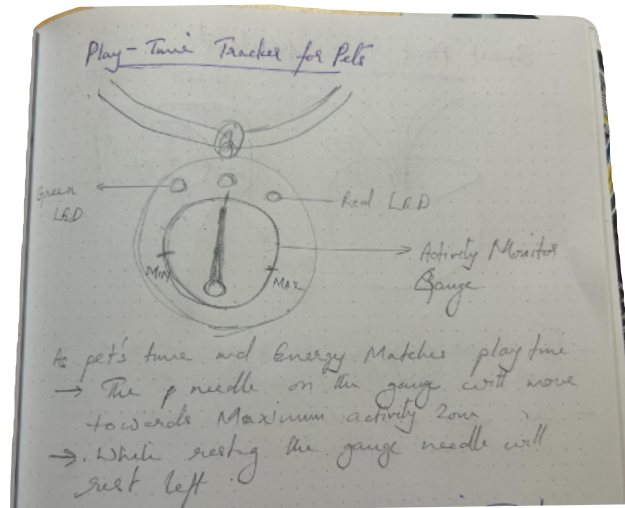 Play-Time Tracker for Pets
Green LED
Red LED
MIN
MAX
Activity Monitor
Gauge
As pet's time and Energy Matches playtime
→ The p needle on the gauge will move
towards Maximum activity Zone
→ . While resting the gauge needle will
rest left.